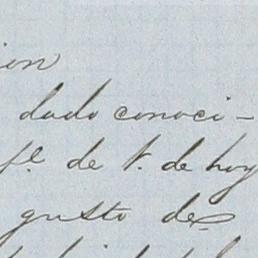 ion
dado conoci-
fl. de V. de hoy
gusto de